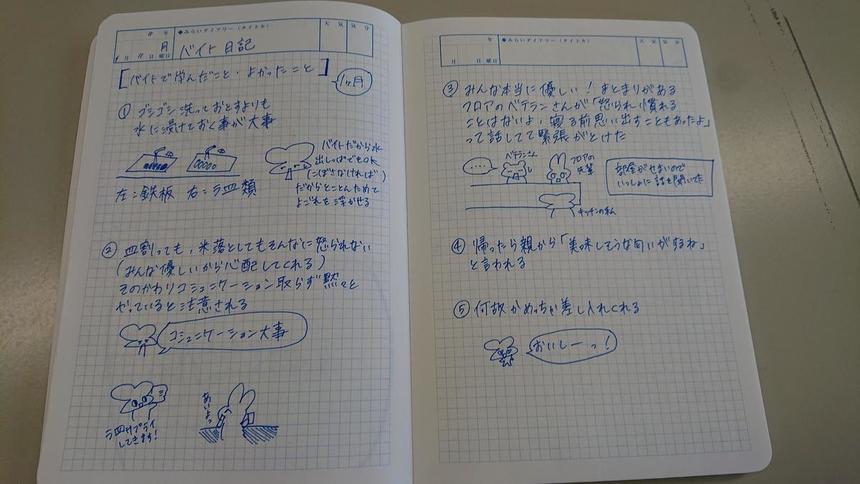 ◆みらいダイアリー(タイトル)
天気 気分
年
月
月 日 曜日
バイト日記
[バイトで学んだこと・よかったこと]
1ヶ月
① ゴシゴシ洗っておとすよりも
水に浸けておく事が大事
左:鉄板 右:ラ皿類
バイトだから水
出しっぱでもOK
(こぼさなければ)
だからとことんためて
よごれを浮かせる
② 皿割っても、米落としてもそんなに怒られない
(みんな優しいから心配してくれる)
そのかわりコミュニケーション取らず黙々と
やっていると注意される
コミュニケーション大事
ラ皿サプライ
してきます!
あいよっ
◆みらいダイアリー(タイトル)
年
天気 気分
月 日 曜日
③ みんな本当に優しい!まとまりがある
フロアのベテランさんが「怒られ慣れる
ことはないよ、寝る前思い出すこともあったよ」
って話してて緊張がとけた
ベテランさん
フロアの
先輩
部屋がせまいので
いっしょに話を聞いてた
キッチンの私
④ 帰ったら親から「美味しそうな匂いがするね」
と言われる
⑤ 何故かめっちゃ差し入れくれる
おいしーっ!